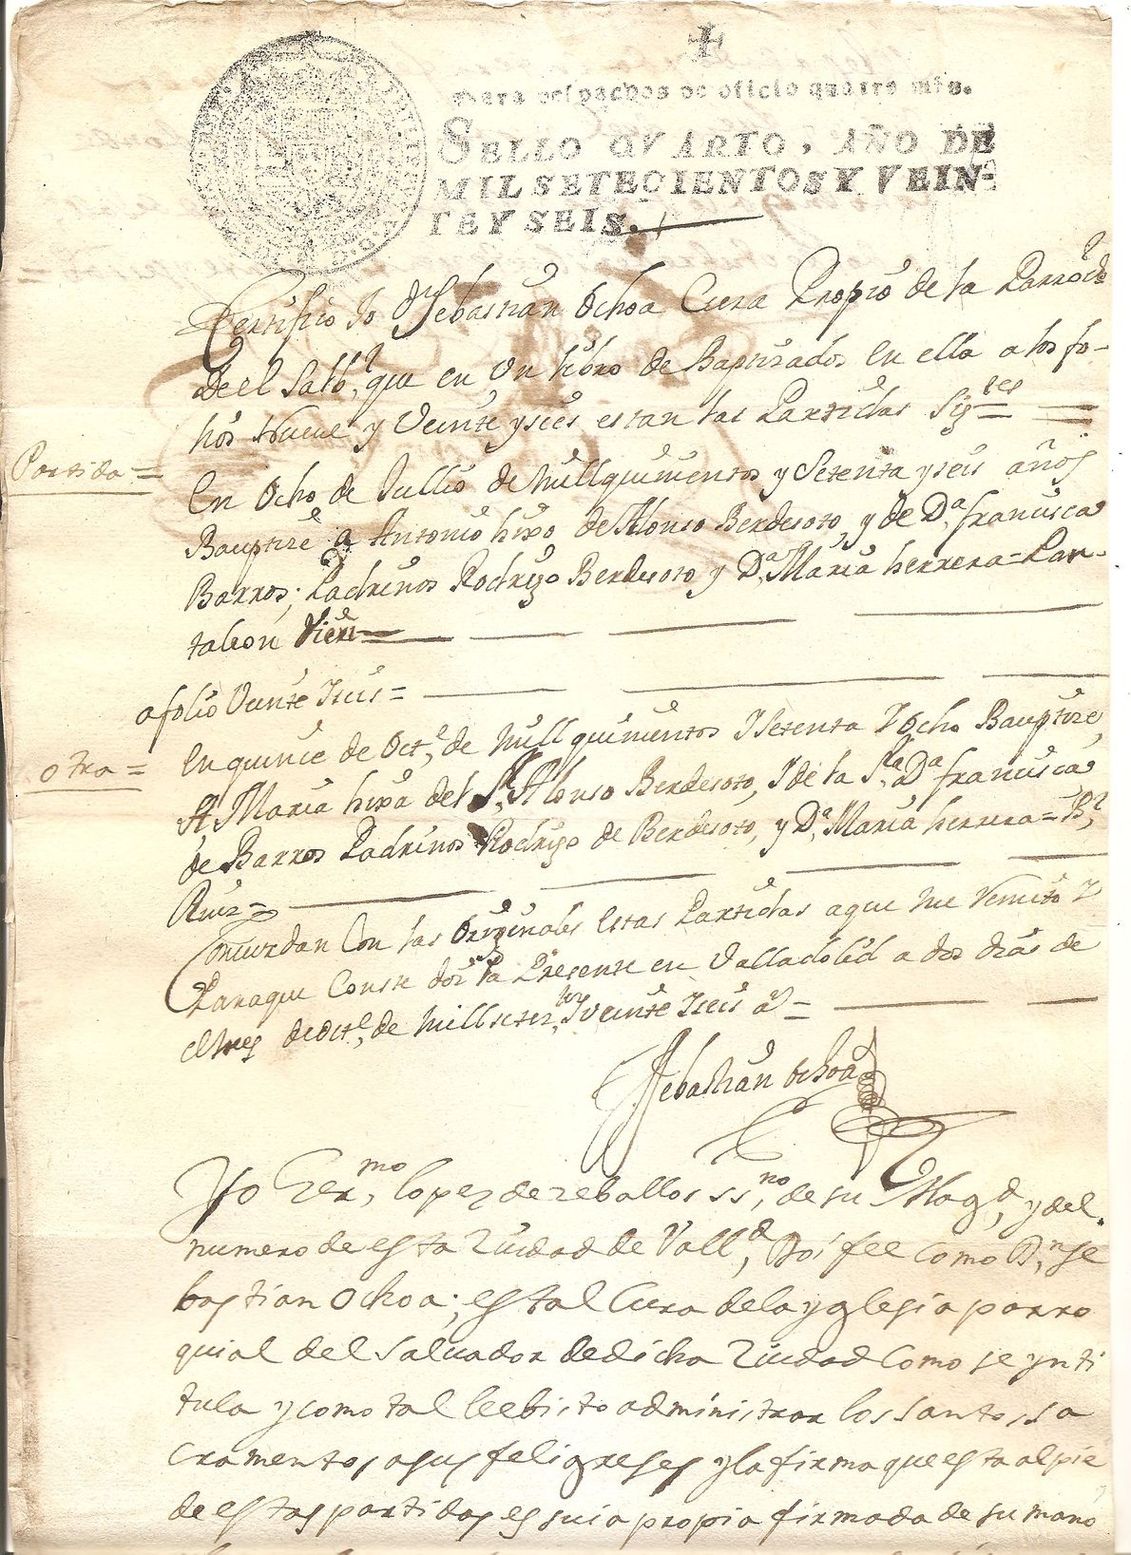 Para despachos de oficio quatro mrs.
SELLO QVARTO, AÑO DE
MIL SETECIENTOS Y VEIN-
TE Y SEIS.
Certifico Yo Dn Sebastian Ochoa Cura Propio de la Parrochl
de el Salbr, que en Un libro de Baptizados en ella a los fo-
lios Nueve y Veinte y seis estan las Partidas Sigtes =
Partida =
En Ocho de Jullio de mill quinientos y Setenta y seis años
Bauptize a Antonio hixo de Alonso Berdesoto, y de Da francisca
Barros; Padrinos Rodrigo Berdesoto y Da Maria herrera = Pan-
taleon
a folio Veinte Y seis =
otra =
En quince de Octe, de mill quinientos Y setenta Y Ocho Bauptize,
A Maria hixa del Sr Alonso Berdesoto, Y de la Sra Da francisca
de Barros Padrinos Rodrigo de Berdesoto, y Da Maria herrera = Br
Ruiz =
Concuerdan Con las Originales estas Partidas a que me Remito Y
Para que Conste doi la Presente en Valladolid a dos dias de
el mes de octe, de mill setezos Y veinte Y seis as =
Sebastian Ochoa
Yo Germo, lopez de zeballos ssno, de su Magd, y del
numero de esta Ziudad de Valld, Doi fee como Dn, se
bastian Ochoa; es tal Cura de la yglesia parro
quial del Salvador de dicha Ziudad Como se ynti
tula y como tal le e bisto administrar los santos sa
cramentos a sus feligreses y la firma que esta al pie
de estas partidas es suia propia firmada de su mano